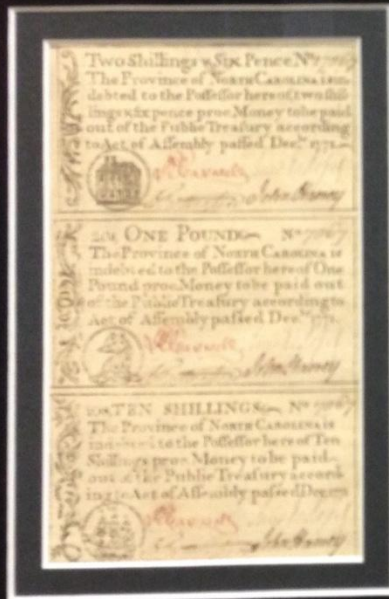 Two Shillings & Six Pence No
The Province of North Carolina is in-
debted to the Possessor hereof, two shil-
lings & six pence proc. Money to be paid
out of the Public Treasury according
to Act of Assembly passed Decr. 1771.
John Harvey
One Pound No 7067
The Province of North Carolina is
indebted to the Possessor hereof One
Pound proc. Money to be paid out
of the Public Treasury according to
Act of Assembly passed Decr. 1771.
John Harvey
Ten Shillings No 7067
The Province of North Carolina is
indebted to the Possessor hereof Ten
Shillings proc. Money to be paid
out of the Public Treasury accord-
ing to Act of Assembly passed Decr. 1771
John Harvey